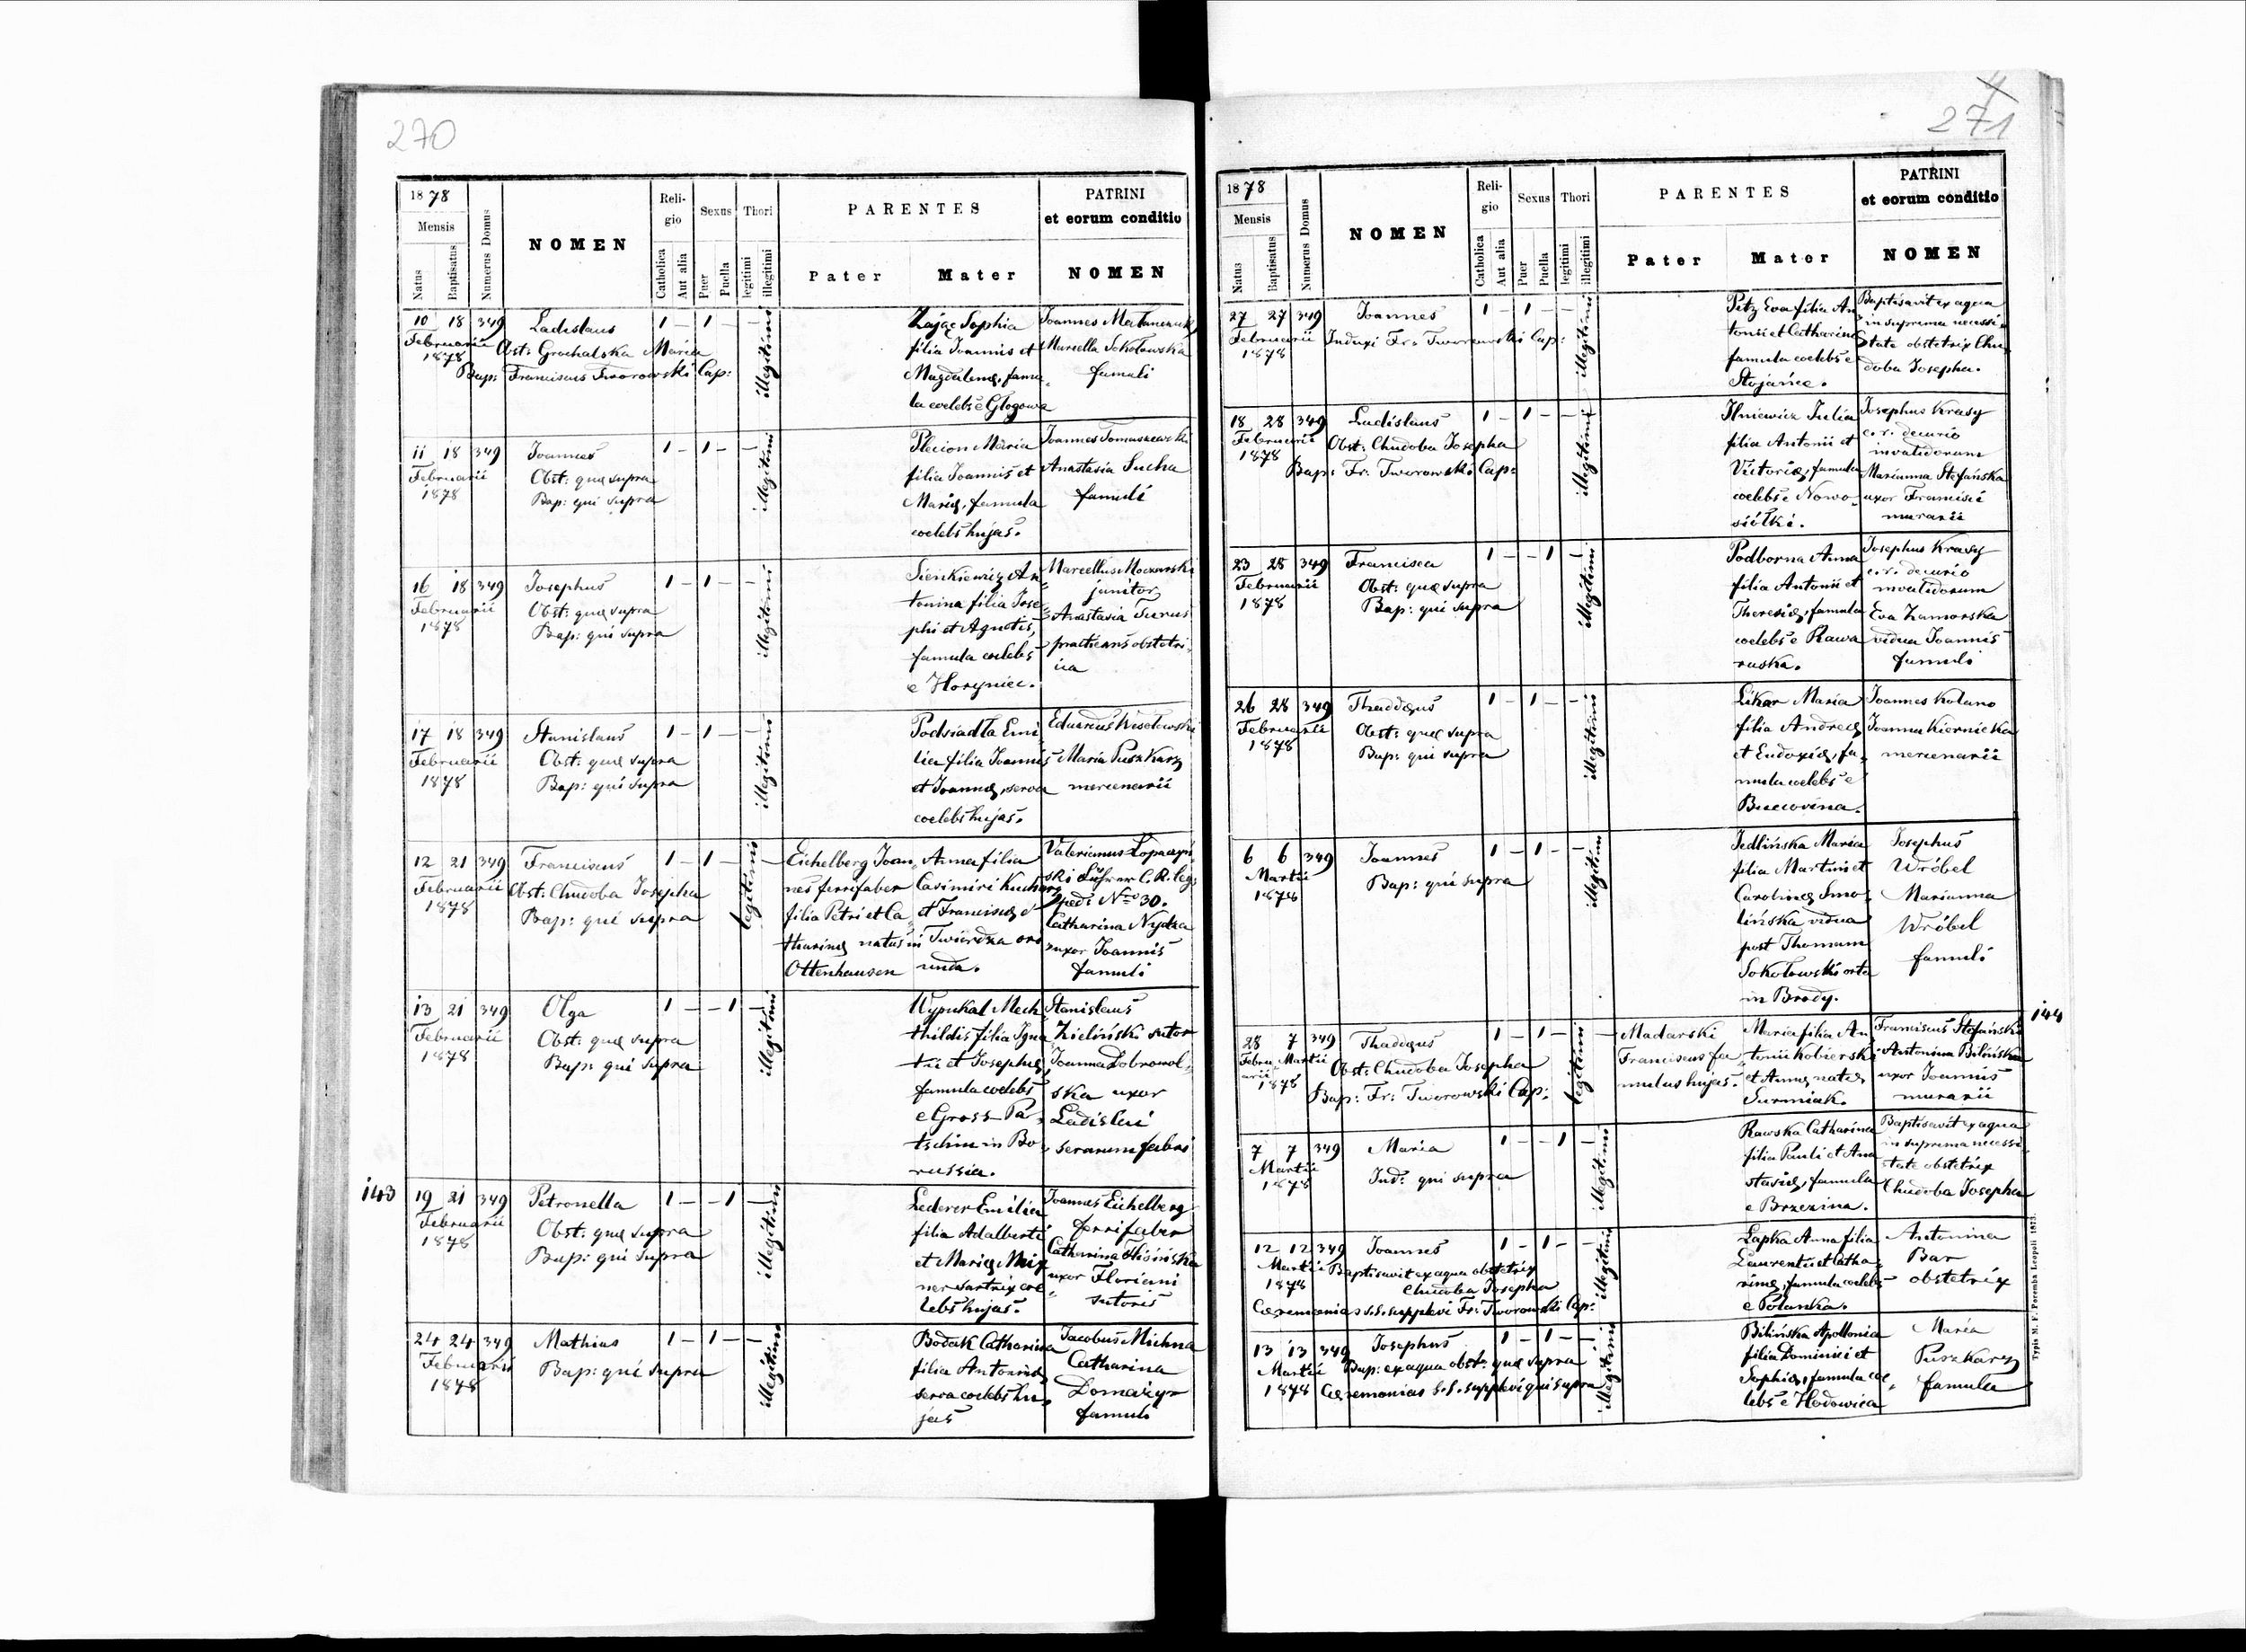 270
1878
Mensis
Natus
Baptisatus
Numerus Domus
NOMEN
Reli-
gio
Catholica
Aut alia
Sexus
Puer
Puella
Thori
legitimi
illegitimi
PARENTES
Pater
Mater
PATRINI
et eorum conditio
NOMEN
10 18 349 Ladislaus 1 – 1 – –
Februarii
1878
Obst: Grochalska Maria
Bap: Franciscus Tworowski Cap:
illegitimi
Zając Sophia
filia Joannis et
Magdalenę, famu
la coelebs e Glogowa
Joannes
Marcella Sokołowska
famuli
11 18 349 Joannes 1 – 1 – –
Februarii
1878
Obst: quę supra
Bap: qui supra
illegitimi
Plecion Maria
filia Joannis et
Marię, famula
coelebs hujas.
Joannes Tomaszewski
Anastasia Sucha
famuli
16 18 349 Josephus 1 – 1 – –
Februarii
1878
Obst: quę supra
Bap: qui supra
illegitimi
Sienkiewicz An
tonina filia Jose
phi et Agnetis,
famula coelebs
e Horyniec.
Marcellus Moczarski
janitor
Anastasia Surus
practicans obstetri
cia
17 18 349 Stanislaus 1 – 1 – –
Februarii
1878
Obst: quę supra
Bap: qui supra
illegitimi
Podsiadła Emi
lia filia Joannis
et Joannę, serva
coelebs hujas.
Eduardus Wisełowski
Maria Puszkarz
mercenarii
12 21 349 Franciscus 1 – 1 – –
Februarii
1878
Obst: Chudoba Josepha
Bap: qui supra
legitimi
Eichelberg Joan,
nes ferrifaber
filia Petri et Ca
tharinę natus in
Ottenhausen
Anna filia
Casimiri Kucharz
et Franciscę e
Twierdza ori
unda.
Valerianus Łopaczyń
ski Führer C. R. leg:
ped: No 30.
Catharina Nydza
uxor Joannis
famuli
13 21 349 Olga 1 – – 1 –
Februarii
1878
Obst: quę supra
Bap: qui supra
illegitimi
Wypukal Mech
thildis filia Igna
tii et Josephę,
famula coelebs
e Gross Pa
tschin in Bo
russia.
Stanislaus
Zieliński sutor
Joanna Dobrowol,
ska uxor
Ladislai
serarum fabri
143
19 21 349 Petronella 1 – – 1 –
Februarii
1878
Obst: quę supra
Bap: qui supra
illegitimi
Lederer Emilia
filia Adalberti
et Marię Mix
ner sartrix coe
lebs hujas.
Joannes Eichelberg
ferrifaber
Catharina
uxor Floriani
sutoris
24 24 349 Mathias 1 – 1 – –
Februarii
1878
Bap: qui supra
illegitimi
Bodak Catharina
filia Antonii
serva coelebs hu
jas
Jacobus Michna
Catharina
Domażyr
famuli
271
1878
Mensis
Natus
Baptisatus
Numerus Domus
NOMEN
Reli-
gio
Catholica
Aut alia
Sexus
Puer
Puella
Thori
legitimi
illegitimi
PARENTES
Pater
Mater
PATRINI
et eorum conditio
NOMEN
27 27 349 Joannes 1 – 1 – –
Februarii
1878
Induxi Fr: Tworowski Cap:
illegitimi
Petz Eva filia An
tonii et Catharinę
famula coelebs e
Stojańce.
Baptisavit ex aqua
in suprema necessi
tate obstetrix Chu
doba Josepha.
18 28 349 Ladislaus 1 – 1 – –
Februarii
1878
Obst: Chudoba Josepha
Bap: Fr: Tworowski Cap:
illegitimi
Ilniewicz Julia
filia Antonii et
Victorię, famula
coelebs e Nowo
siółki.
Josephus Krasy
c. r. decurio
invalidorum
Marianna Stefańska
uxor Francisci
murarii
23 28 349 Francisca 1 – – 1 –
Februarii
1878
Obst: quę supra
Bap: qui supra
illegitimi
Podborna Anna
filia Antonii et
Theresię, famula
coelebs e Rawa
ruska.
Josephus Krasy
c. r. decurio
invalidorum
Eva Zamorska
vidua Joannis
famuli
26 28 349 Thaddęus 1 – 1 – –
Februarii
1878
Obst: quę supra
Bap: qui supra
illegitimi
Likar Maria
filia Andreę
et Eudoxię, fa,
mula coelebs e
Bucovina.
Joannes Kolano
Joanna Kiernicka
mercenarii
6 6 349 Joannes 1 – 1 – –
Martii
1878
Bap: qui supra
illegitimi
Jedlińska Maria
filia Martini et
Carolinę Smo
lińska vidua
post Thomam
Sokołowski orta
in Brody.
Josephus
Wróbel
Marianna
Wróbel
famuli
144
28 7 349 Thadęus 1 – 1 – –
Februarii Martii
1878
Obst: Chudoba Josepha
Bap: Fr: Tworowski Cap:
legitimi
Madarski
Franciscus fa
mulus hujas.
Maria filia An
tonii Kobierski
et Annę natę
Surmiak.
Franciscus Stefański
Antonina Bilińska
uxor Joannis
murarii
7 7 349 Maria 1 – – 1 –
Martii
1878
Ind: qui supra
illegitimi
Rawska Catharina
filia Pauli et Ana
stasię, famula
e Brzezina.
Baptisavit ex aqua
in suprema necessi
tate obstetrix
Chudoba Josepha
12 12 349 Joannes 1 – 1 – –
Martii
1878
Baptisavit ex aqua obstetrix
Chudoba Josepha
Cęremonias s.s. supplevi Fr: Tworowski Cap:
illegitimi
Łapka Anna filia
Laurentii et Catha
rinę, famula coelebs
e Polanka.
Antonina
Bar
obstetrix
13 13 349 Josephus 1 – 1 – –
Martii
1878
Bap: ex aqua obst: quę supra
Cęremonias s.s. supplevi qui supra
illegitimi
Bilińska Apollonia
filia Dominici et
Sophię, famula coe
lebs e Hodowica
Maria
Puszkarz
famula
Typis M. F. Poremba Leopoli 1873.